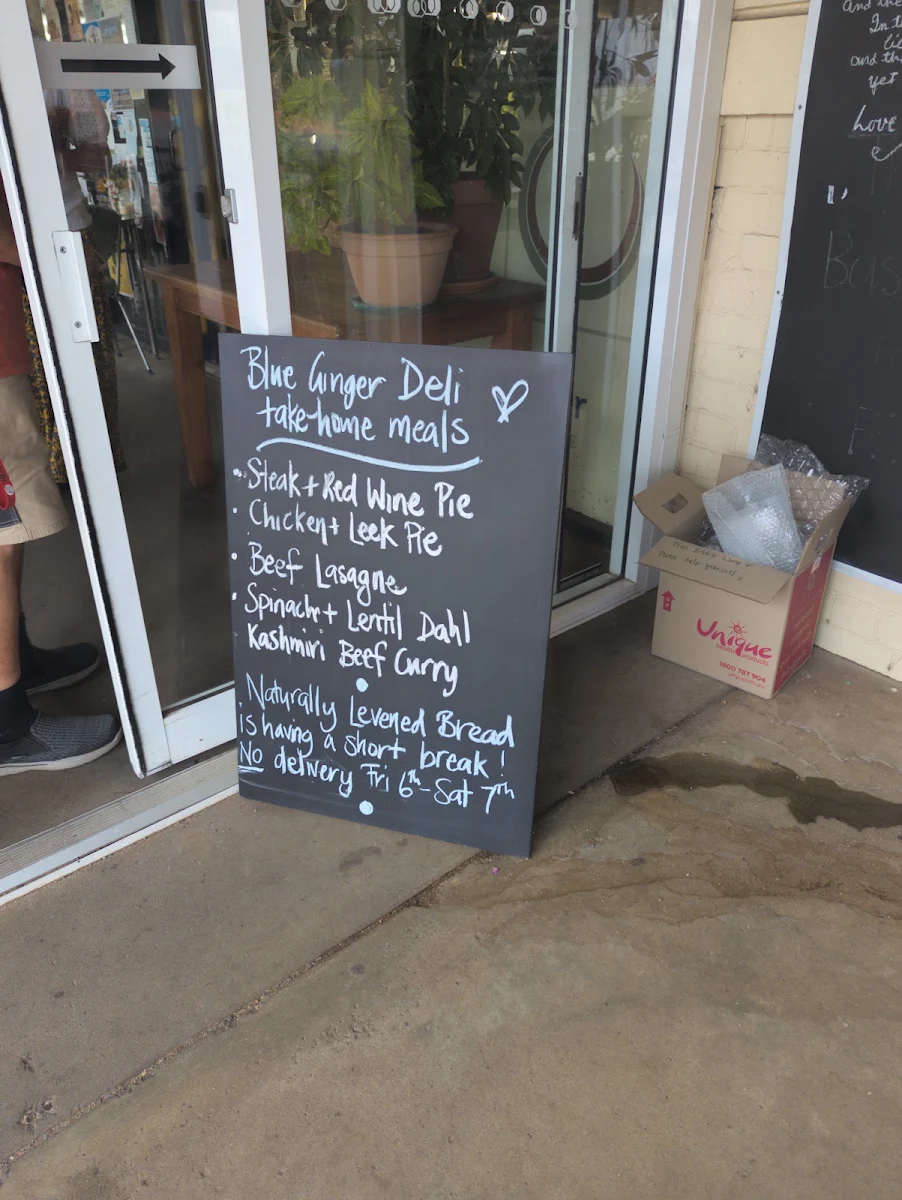 Blue Ginger Deli
take-home meals
Steak + Red Wine Pie
Chicken + Leek Pie
Beef Lasagne
Spinach + Lentil Dahl
Kashmiri Beef Curry
Naturally Levened Bread
is having a short break!
No delivery Fri 6th - Sat 7th
and the
In t
and th
yet
Love
Bas
Please help yourself
Unique
health products
1800 787 904